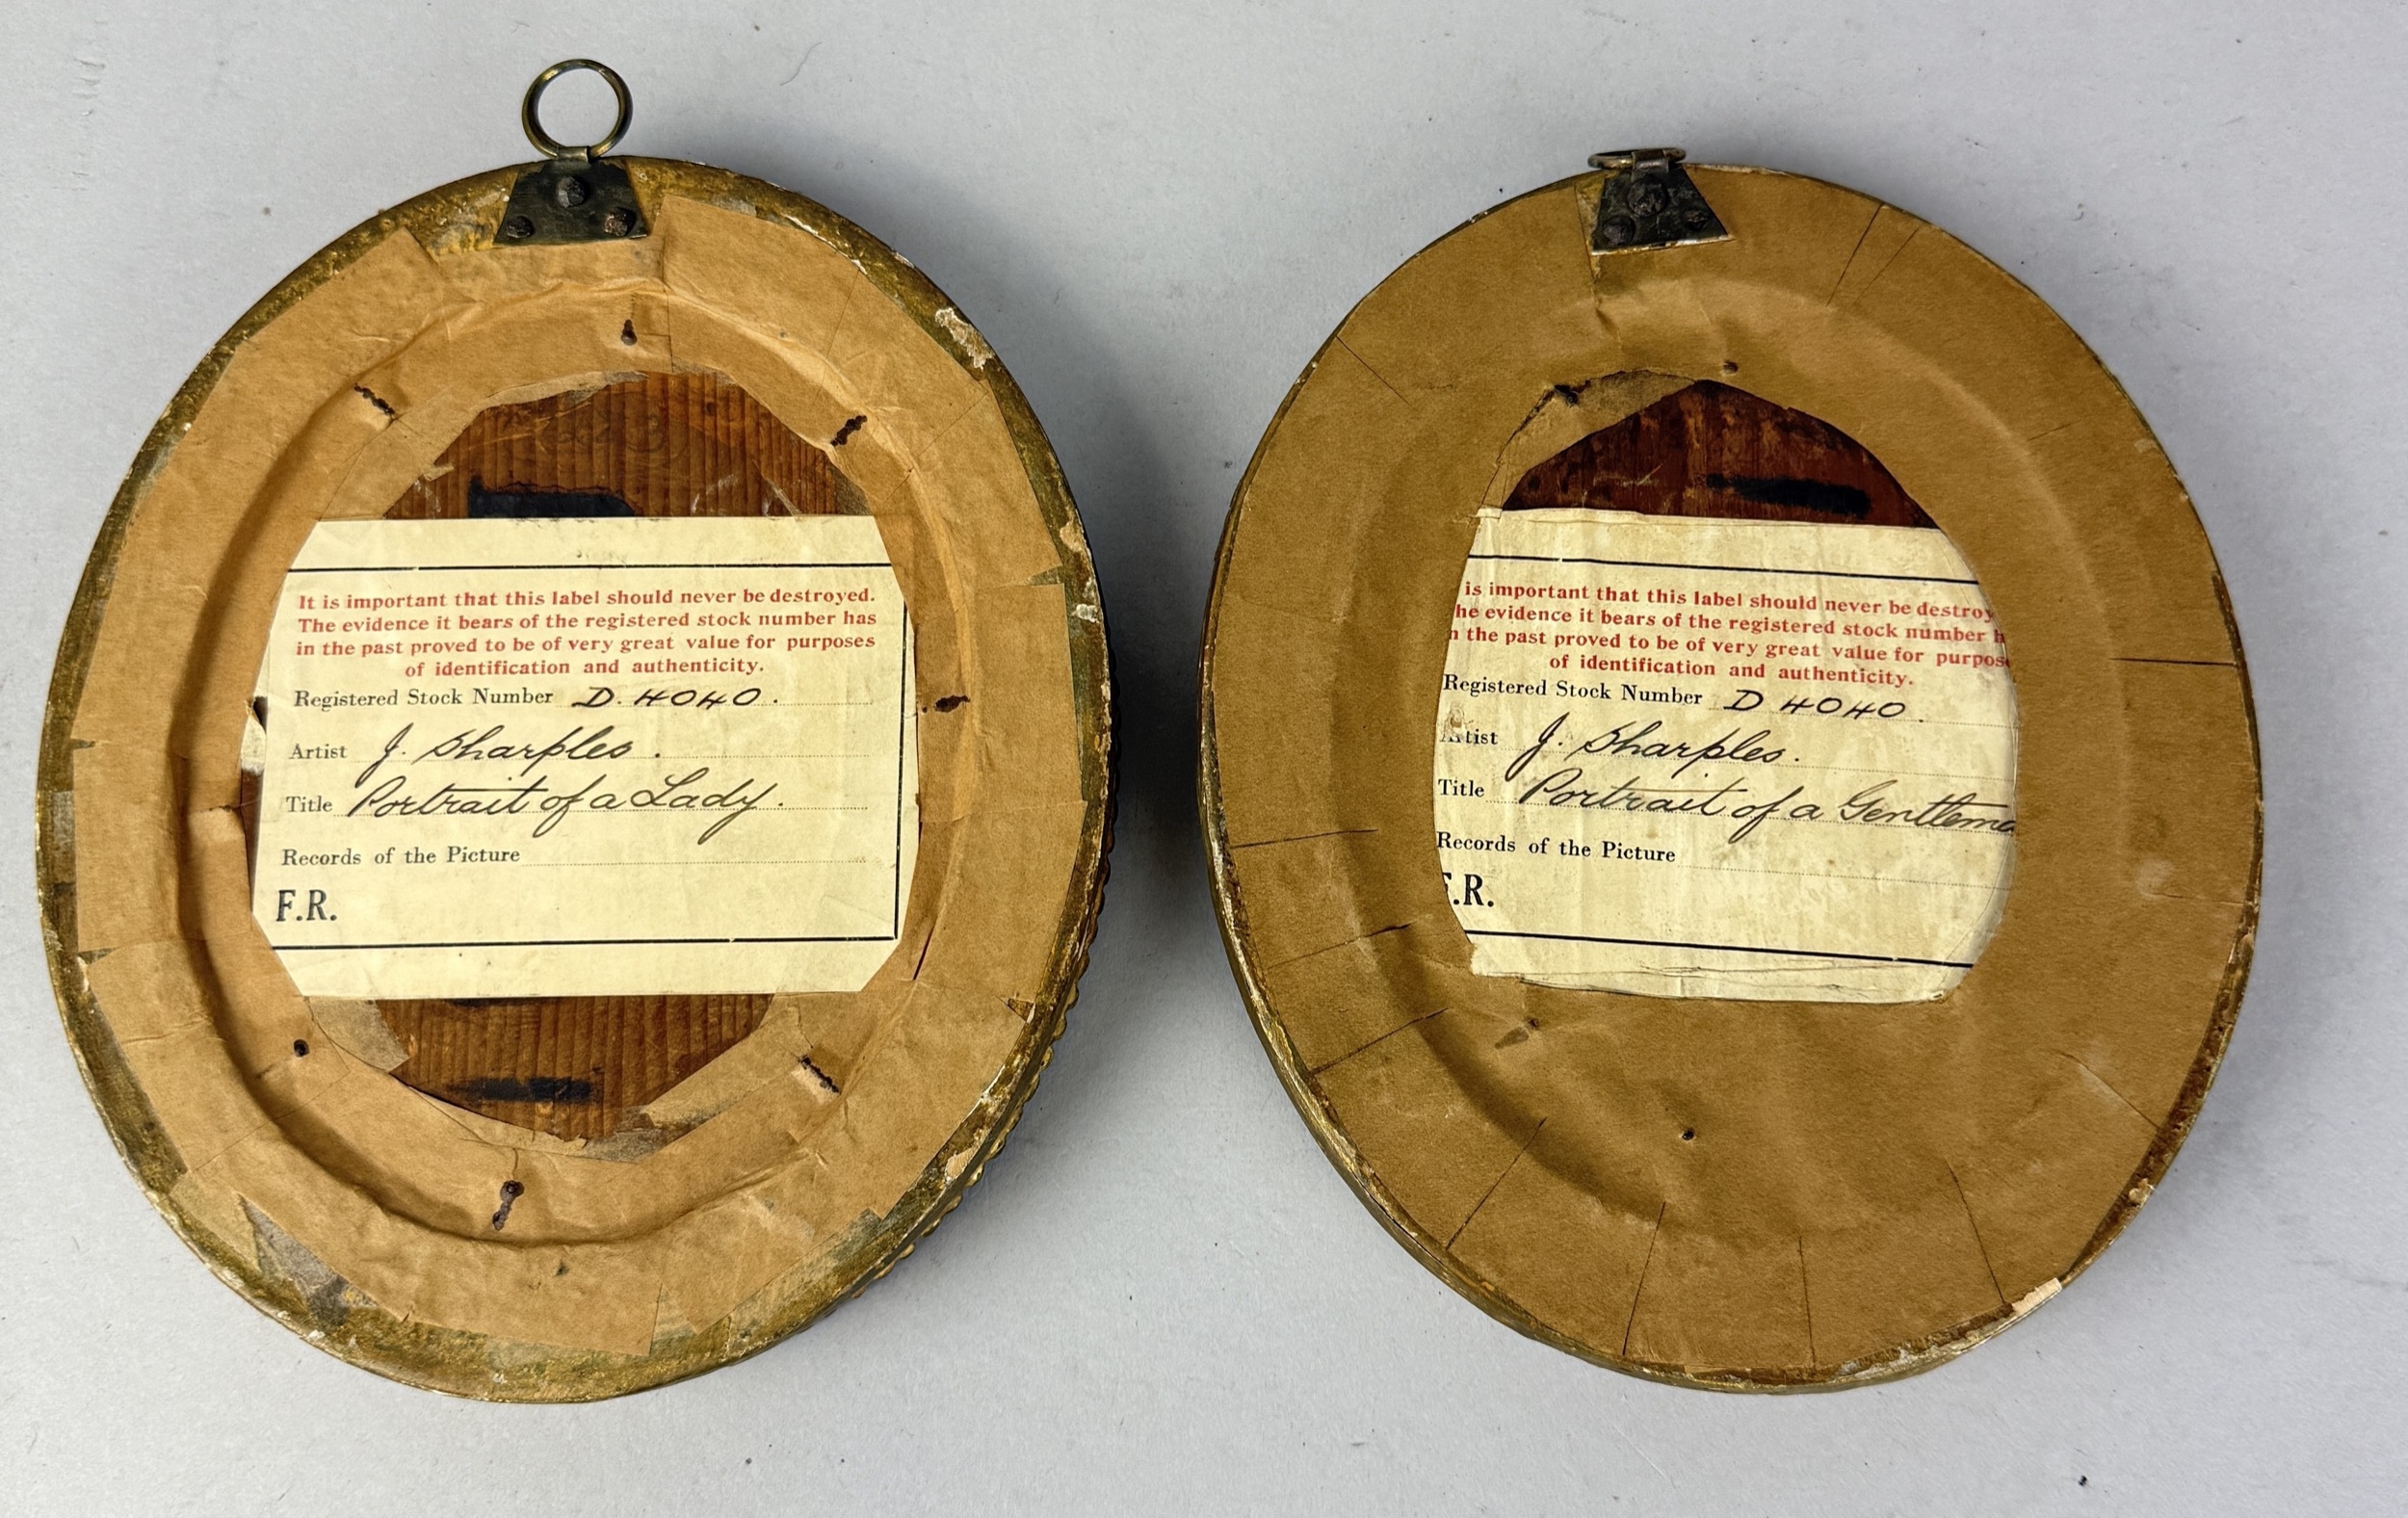 It is important that this label should never be destroyed.
The evidence it bears of the registered stock number has
in the past proved to be of very great value for purposes
of identification and authenticity.
Registered Stock Number D. 4040.
Artist J. Sharples.
Title Portrait of a Lady.
Records of the Picture
F.R.
is important that this label should never be destroy
he evidence it bears of the registered stock number h
n the past proved to be of very great value for purpos
of identification and authenticity.
Registered Stock Number D 4040.
Artist J. Sharples.
Title Portrait of a Gentlema
Records of the Picture
F.R.